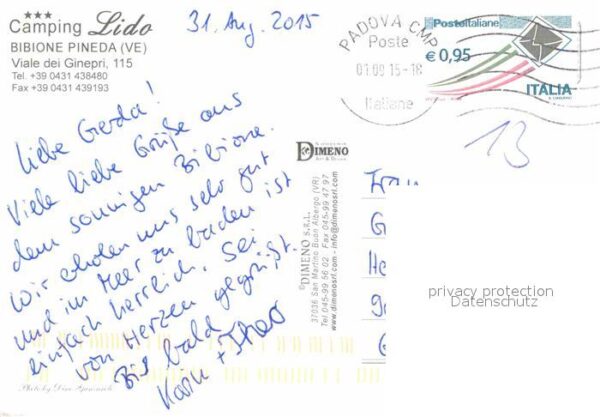 ★★★
Camping Lido
BIBIONE PINEDA (VE)
Viale dei Ginepri, 115
Tel. +39 0431 438480
Fax +39 0431 439193
31. Aug. 2015
Liebe Gerda!
Viele liebe Grüße aus
dem sonnigen Bibione.
Wir erholen uns sehr gut
und im Meer zu baden ist
einfach herrlich. Sei
von Herzen gegrüßt.
Bis bald
Karin + Theo
Photo by Dino
DIMENO
Art & Design
©DIMENO S.R.L.
37036 San Martino Buon Albergo (VR)
Tel. 045-99 56 02 - Fax 045-99 47 97
www.dimenosrl.com - info@dimenosrl.com
PADOVA CMP
Poste
01.09 15-18
Italiane
Posteitaliane
€ 0,95
ITALIA
13
Frau
G
He
G
privacy protection
Datenschutz